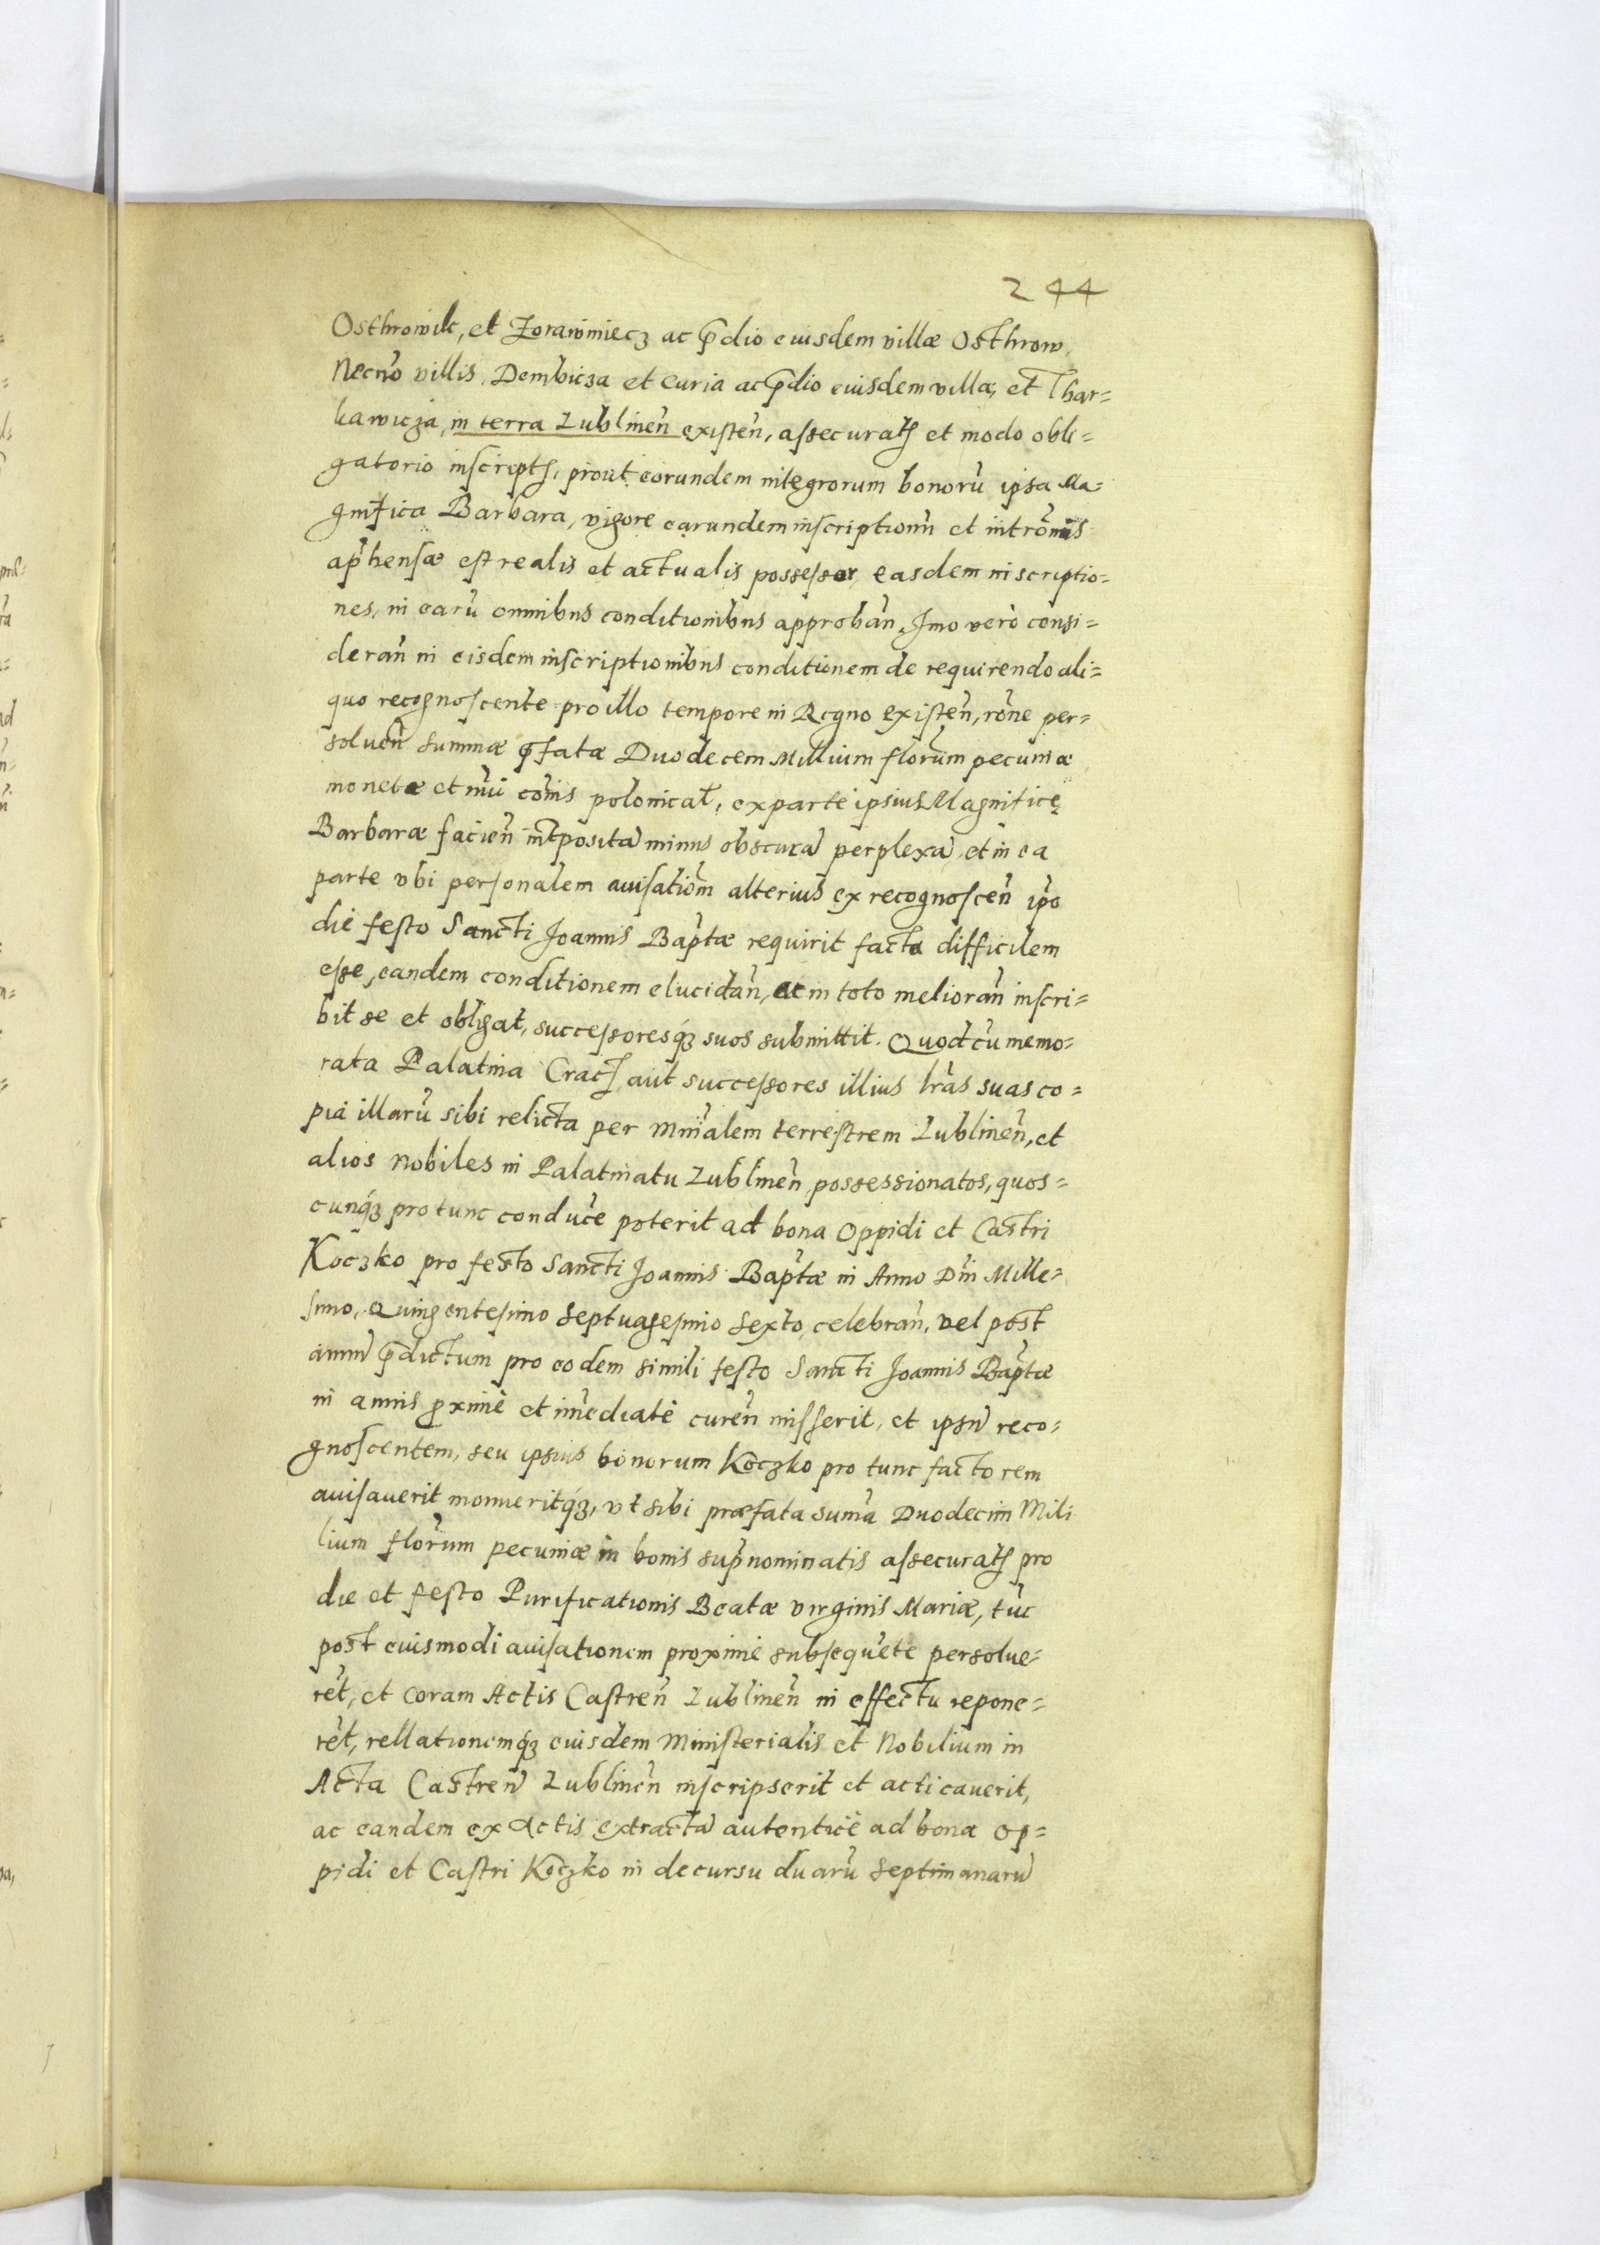 244
Osthrowik, et Zorawiniecz ac p̄dio euisdem villæ Osthrow,
Necnō villis, Dembicza et curia ac p̄dio euisdem villæ, et Thar=
kawicza, in terra Lublineñ existeñ, assecuratꝭ et modo obli=
gatorio inscriptꝭ, prout eorundem integrorum bonorū ipsa Ma=
gnifica Barbara, vigore earundem inscriptionū et intrōmis
ap̄hensæ est realis et actualis possessor, easdem inscriptio=
nes, in earū omnibus conditionibus approbañ. Imo verò consi=
derañ in eisdem inscriptionibus conditionem de requirendo ali=
quo recognoscente pro illo tempore in Regno existeñ, rōne per=
soluen̄ summæ p̄fatæ Duodecem Millium flor̄um pecuniæ
monetæ et nūi cōis polonicał, ex parte ipsius Magnificę
Barbaræ facień int̄posita minus obscura perplexa, et in ea
parte vbi personalem auisatiōm alterius ex recognosceñ ip̄o
die festo Sancti Joannis Bap̄tæ requirit facta difficilem
esse, eandem conditionem elucidañ, ac in toto meliorañ inscri=
bit se et obligat, successoresq́ꝫ suos submittit. Quod cū memo=
rata Palatina Cracꝭ aut successores illius lr̄as suas co=
pia illarū sibi relicta per Minīalem terrestrem Lublineñ, et
alios Nobiles in Palatinatu Lublineñ possessionatos, quos=
cunq́ꝫ pro tunc conducē poterit ad bona Oppidi et Castri
Koczko pro festo Sancti Joannis Bap̄tæ in Anno Dn̄i Mille=
simo, Quingentesimo Septuagesimo Sexto, celebrañ, vel post
annū p̄dictum pro eodem simili festo Sancti Joannis Bap̄tæ
in annis proximè et im̄ediatè cureñ misserit, et ipsū reco=
gnoscentem, seu ipsius bonorum Koczko pro tunc factorem
auisauerit monueritq́ꝫ, vt sibi præfata sum̄a Duodecim Mili
lium flor̄um pecuniæ in bonis sup̄nominatis assecuratꝭ pro
die et festo Purificationis Beatæ Virginis Mariæ, tūc
post euismodi auisationem proximè subsequēte persolue=
rēt, et coram Actis Castreñ Lublineñ in effectu repone=
rēt, rellationemq́ꝫ euisdem Ministerialis et Nobilium in
Acta Castreñ Lublineñ inscripserit et acticauerit,
ac eandem ex Actis extractā autenticè ad bona Op=
pidi et Castri Koczko in decursu duarū septimanarū